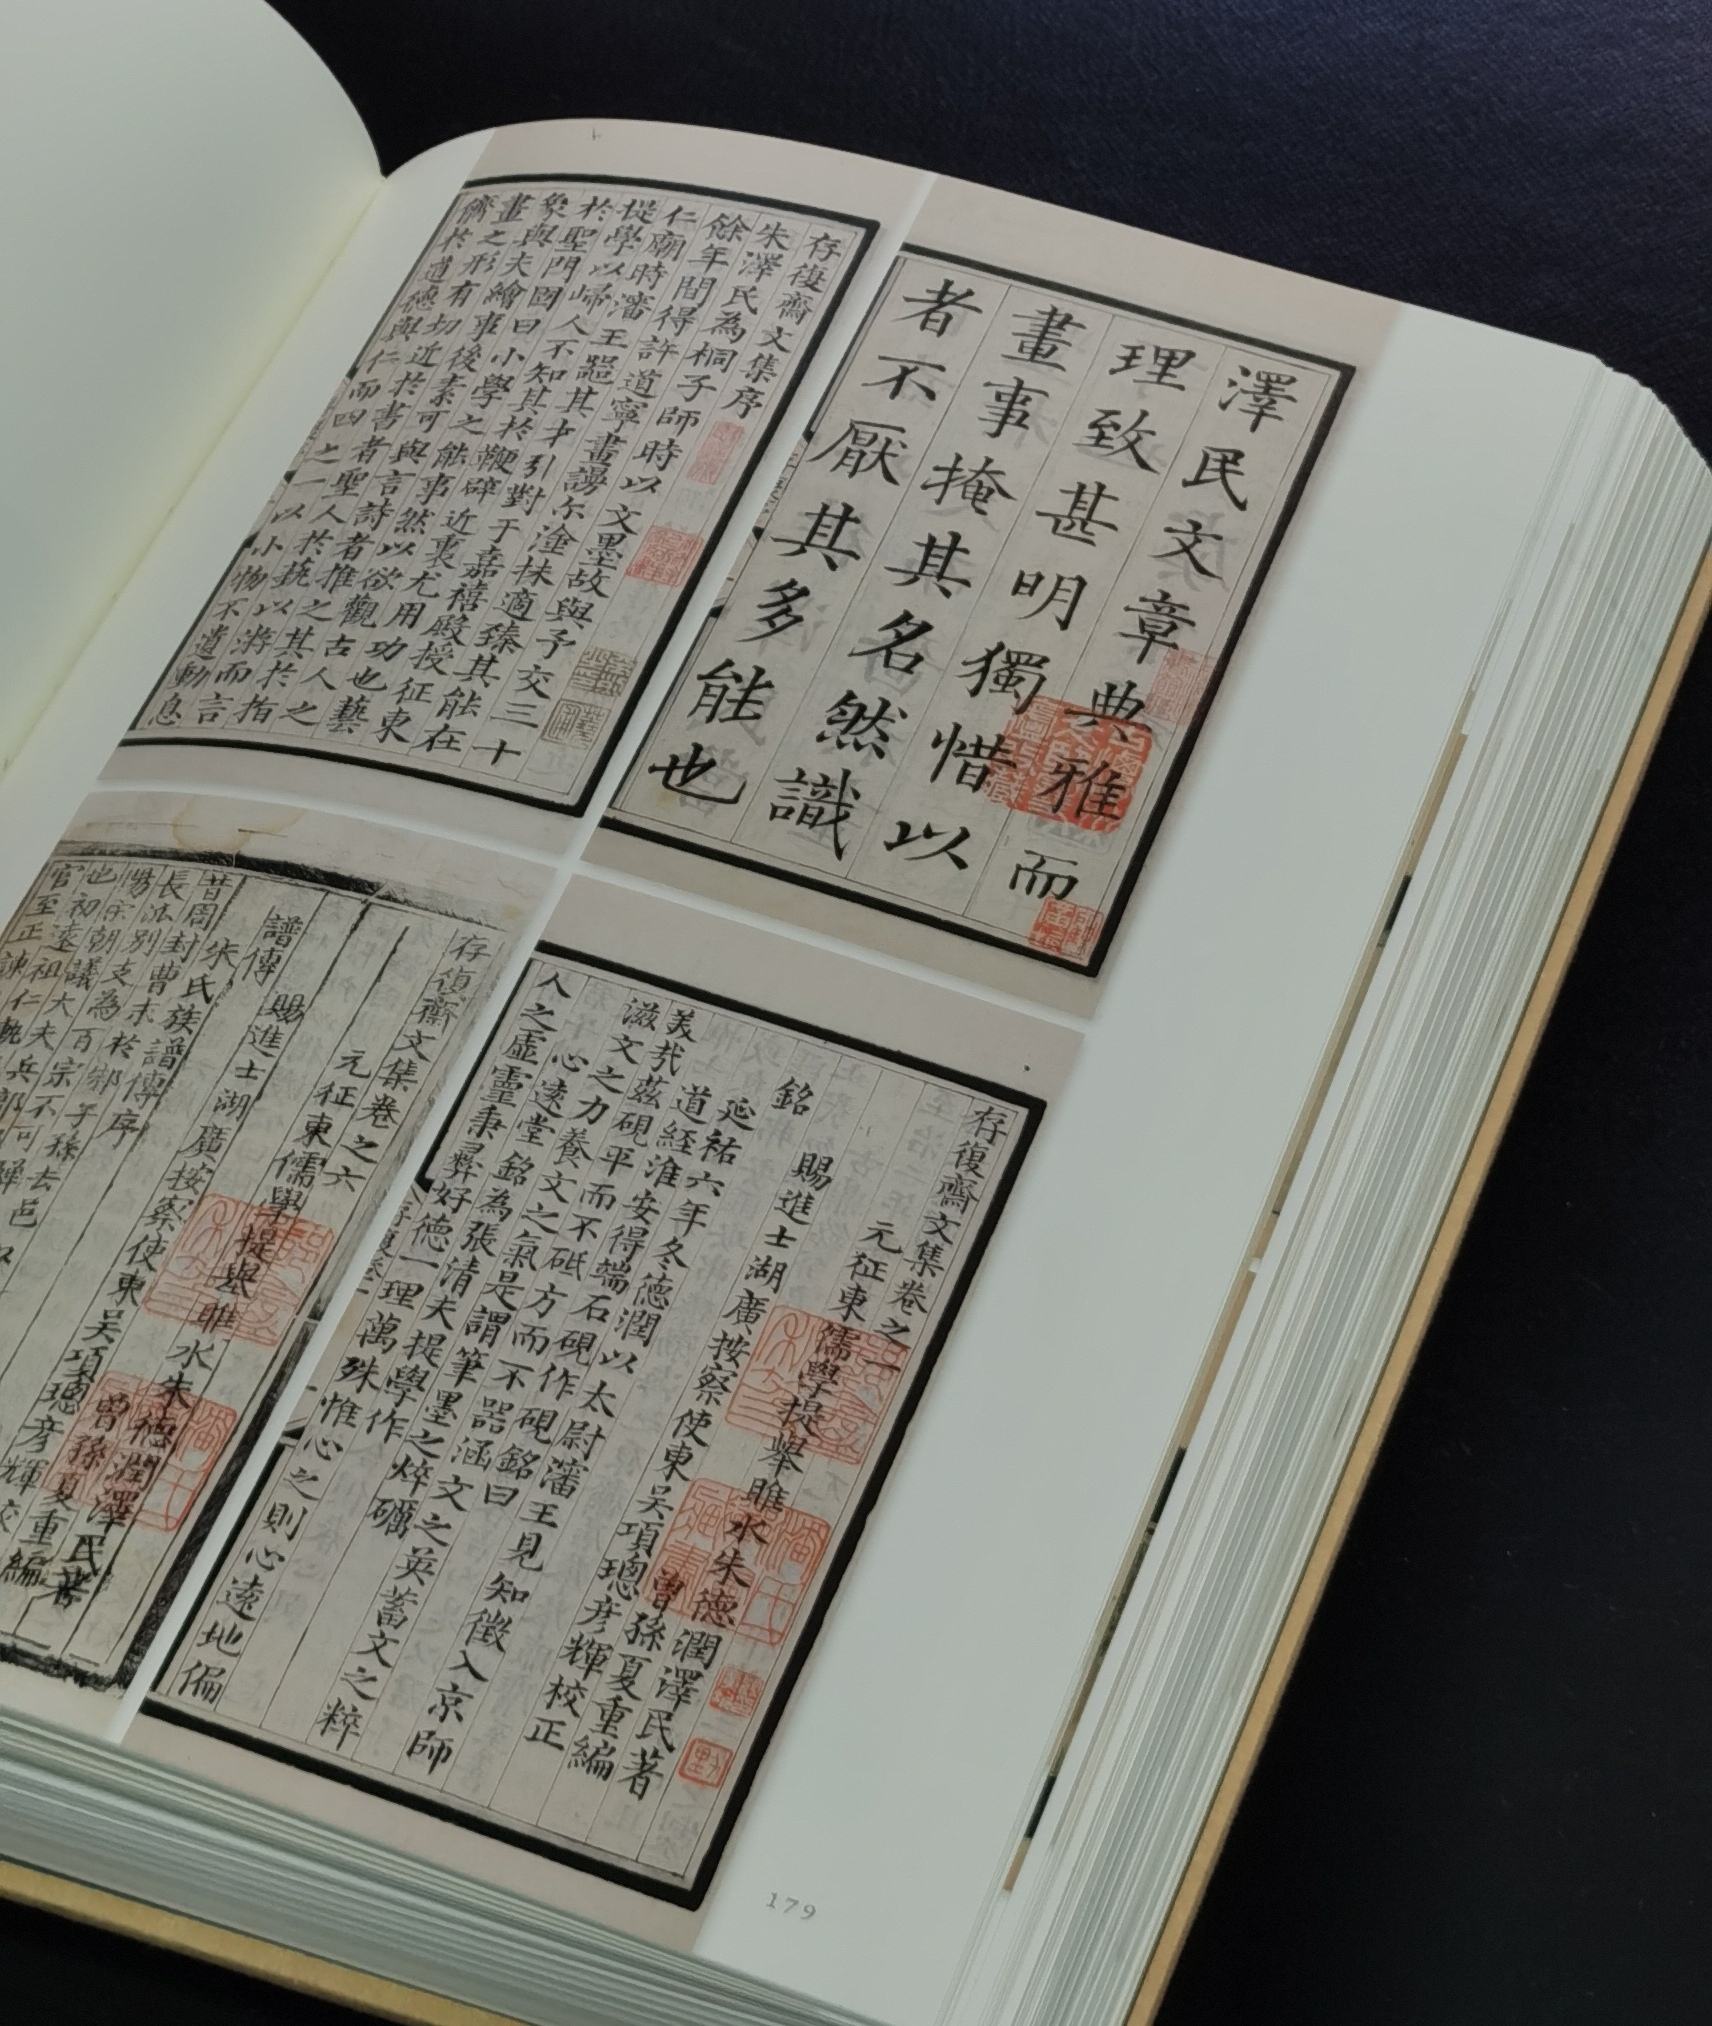 澤民文章典雅而
理致甚明獨惜以
畫事掩其名然識
者不厭其多能也
存復齋文集序
朱澤民為桐子師時以文墨故與予交三十
餘年間得許道寧畫謾尔塗抹適臻其能在
仁廟時瀋王噐其才引對于嘉禧殿授征東
從學以歸人不知其於鞭辟近裏尤用功也藝
於聖門固曰小學之能事然以欲觀古人之
象與夫繪事後素可與言詩者推之其於指
畫之形有切近於書者聖人於藝以游而言
儕於道德與仁而四之一以小物不遺動息
存復齋文集卷之一
元征東儒學提舉睢水朱德潤澤民著
曾孫夏重編
賜進士湖廣按察使東吴項璁彦輝校正
銘
延祐六年冬德潤以太尉瀋王見知徵入京師
道経淮安得端石硯作硯銘曰
美哉茲硯平而不砥方而不噐涵文之英蓄文之粹
滋文之力養文之氣是謂筆墨之焠礪
心逺堂銘為張清夫提學作
人之虚靈秉彛好德一理萬殊惟心之則心逺地偏
存復齋文集卷之六
元征東儒學提舉睢水朱德潤澤民著
曾孫夏重編
賜進士湖廣按察使東吴項璁彦輝校
譜傳
朱氏族譜傳序
昔周封曹末於邾子孫去邑
長沠别支為百宗不
也初朝議大夫
官至正諫
179